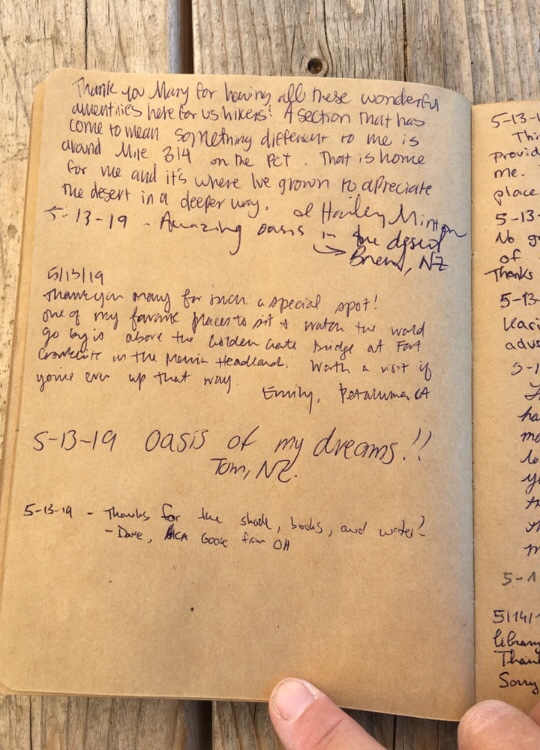 Thank you Mary for having all these wonderful
amenities here for us hikers! A section that has
come to mean something different to me is
around Mile 314 on the PCT. That is home
for me and it's where Ive grown to apreciate
the desert in a deeper way. Hailey Minton
5-13-19 - Amazing oasis in the desert
Brend, NZ
5/13/19
Thank you Mary for such a special spot!
one of my favorite places to sit & watch the world
go by is above the Golden Gate Bridge at Fort
in the Marin Headland. Worth a visit if
you're ever up that way.
Emily, Petaluma CA
5-13-19 Oasis of my dreams!!
Tom, NZ.
5-13-19 - Thanks for the shade, books, and water!
- Dave, AKA Goose from OH
5-13-1
Thi
provid
me.
place
5-13-
No g
of
Thanks
5-13-
Kari
adv
5-1
5-1
5/14/1
Library
Than
Sorry